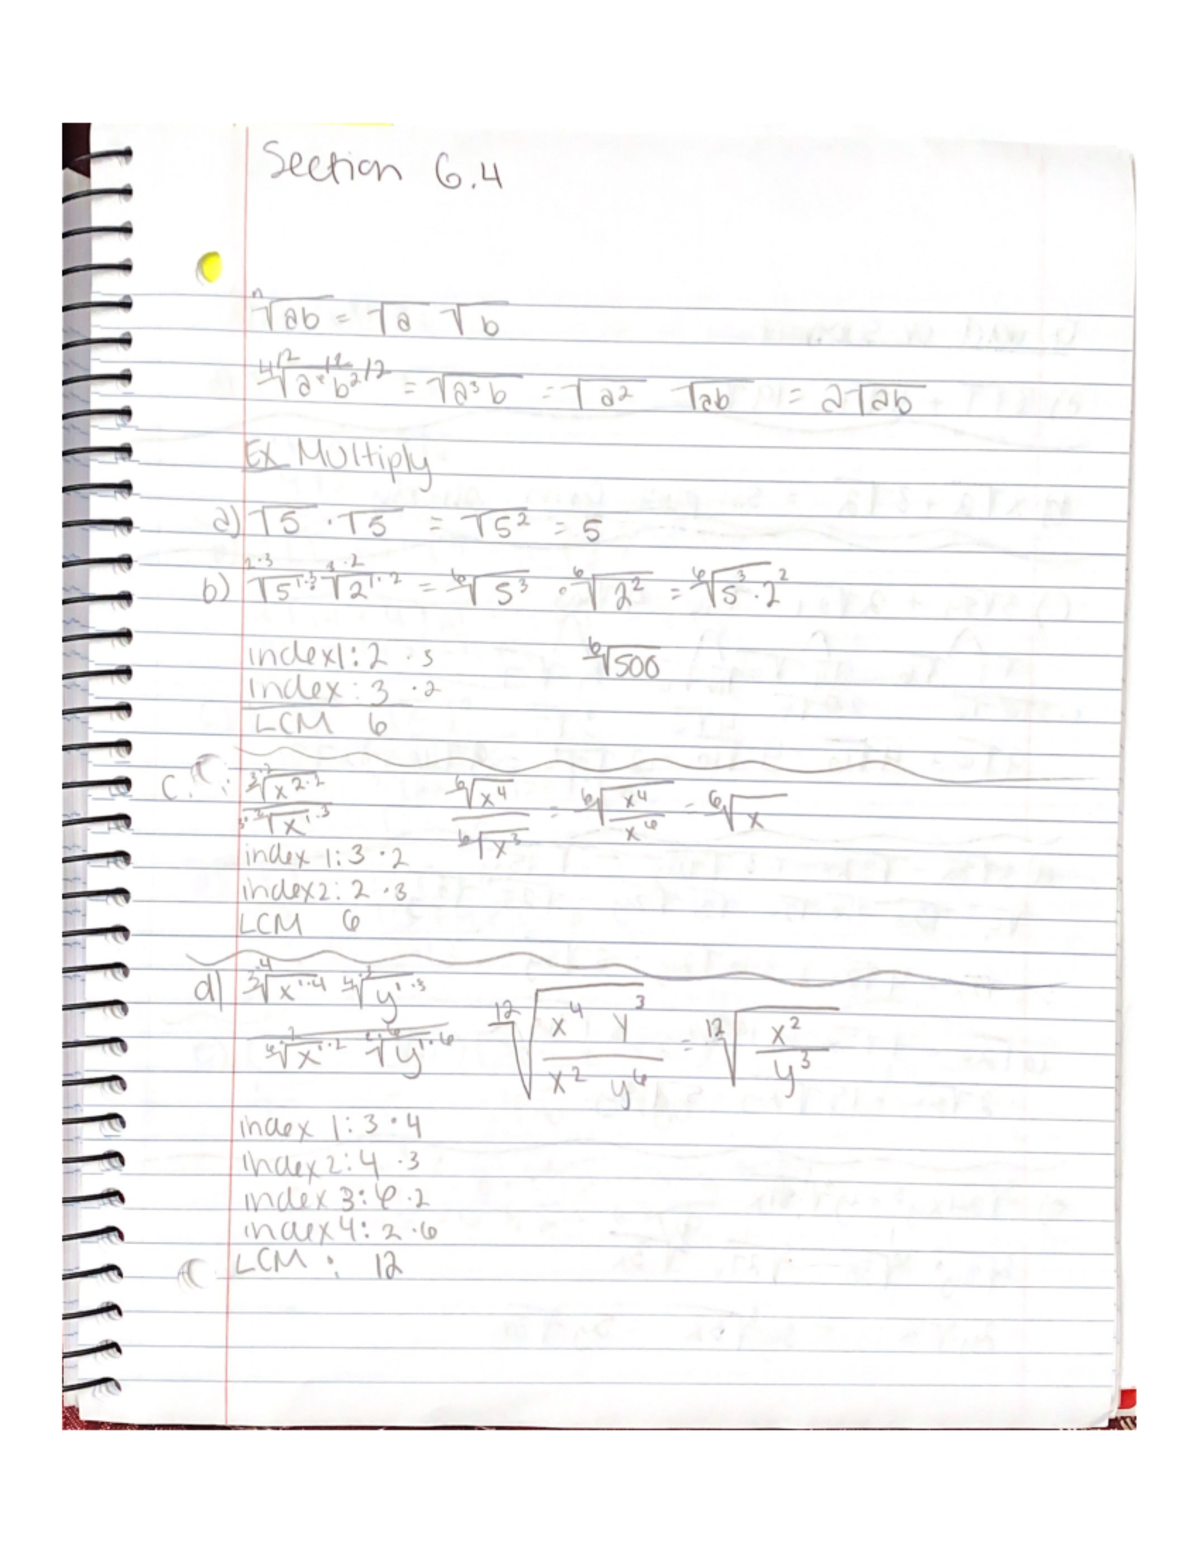 Section 6.4
ⁿ√ab = √a √b
= √a³b = √a² √ab = a√ab
Ex Multiply
a) √5 · √5 = √5² = 5
b) ²·³√5¹·³ ³·²√2¹·² = ⁶√5³ · ⁶√2² = ⁶√5³·2²
index1: 2 · 3 ⁶√500
index: 3 · 2
LCM 6
c. ³·²√x²·² / ²·³√x¹·³ ⁶√x⁴ / ⁶√x³ = ⁶√x⁴/x⁶ = ⁶√x
index 1: 3 · 2
index2: 2 · 3
LCM 6
d) ³·⁴√x¹·⁴ ⁴·³√y¹·³ / ⁶·²√x¹·² ²·⁶√y¹·⁶ ¹²√x⁴ y³ / x² y⁶ = ¹²√x²/y³
index 1: 3 · 4
index2: 4 · 3
index 3: 6 · 2
index4: 2 · 6
LCM : 12